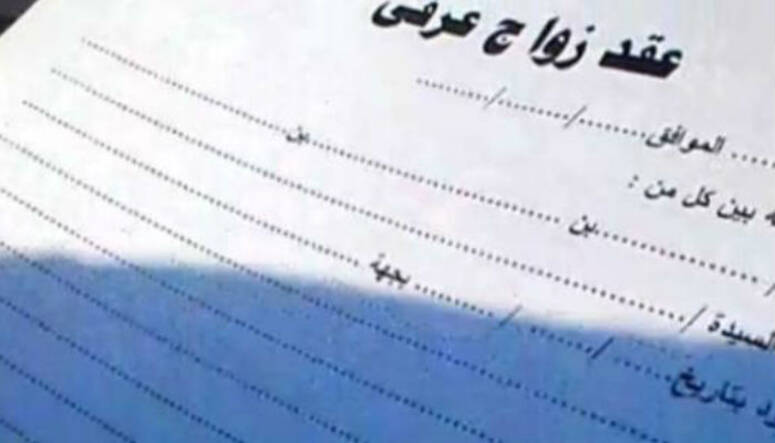 عقد زواج عرفى
.... الموافق ......../......../........
بين كل من :
/ ........................ بن ........................ بن ........................
السيدة / ........................
بتاريخ ......../......../........ بجهة ........................